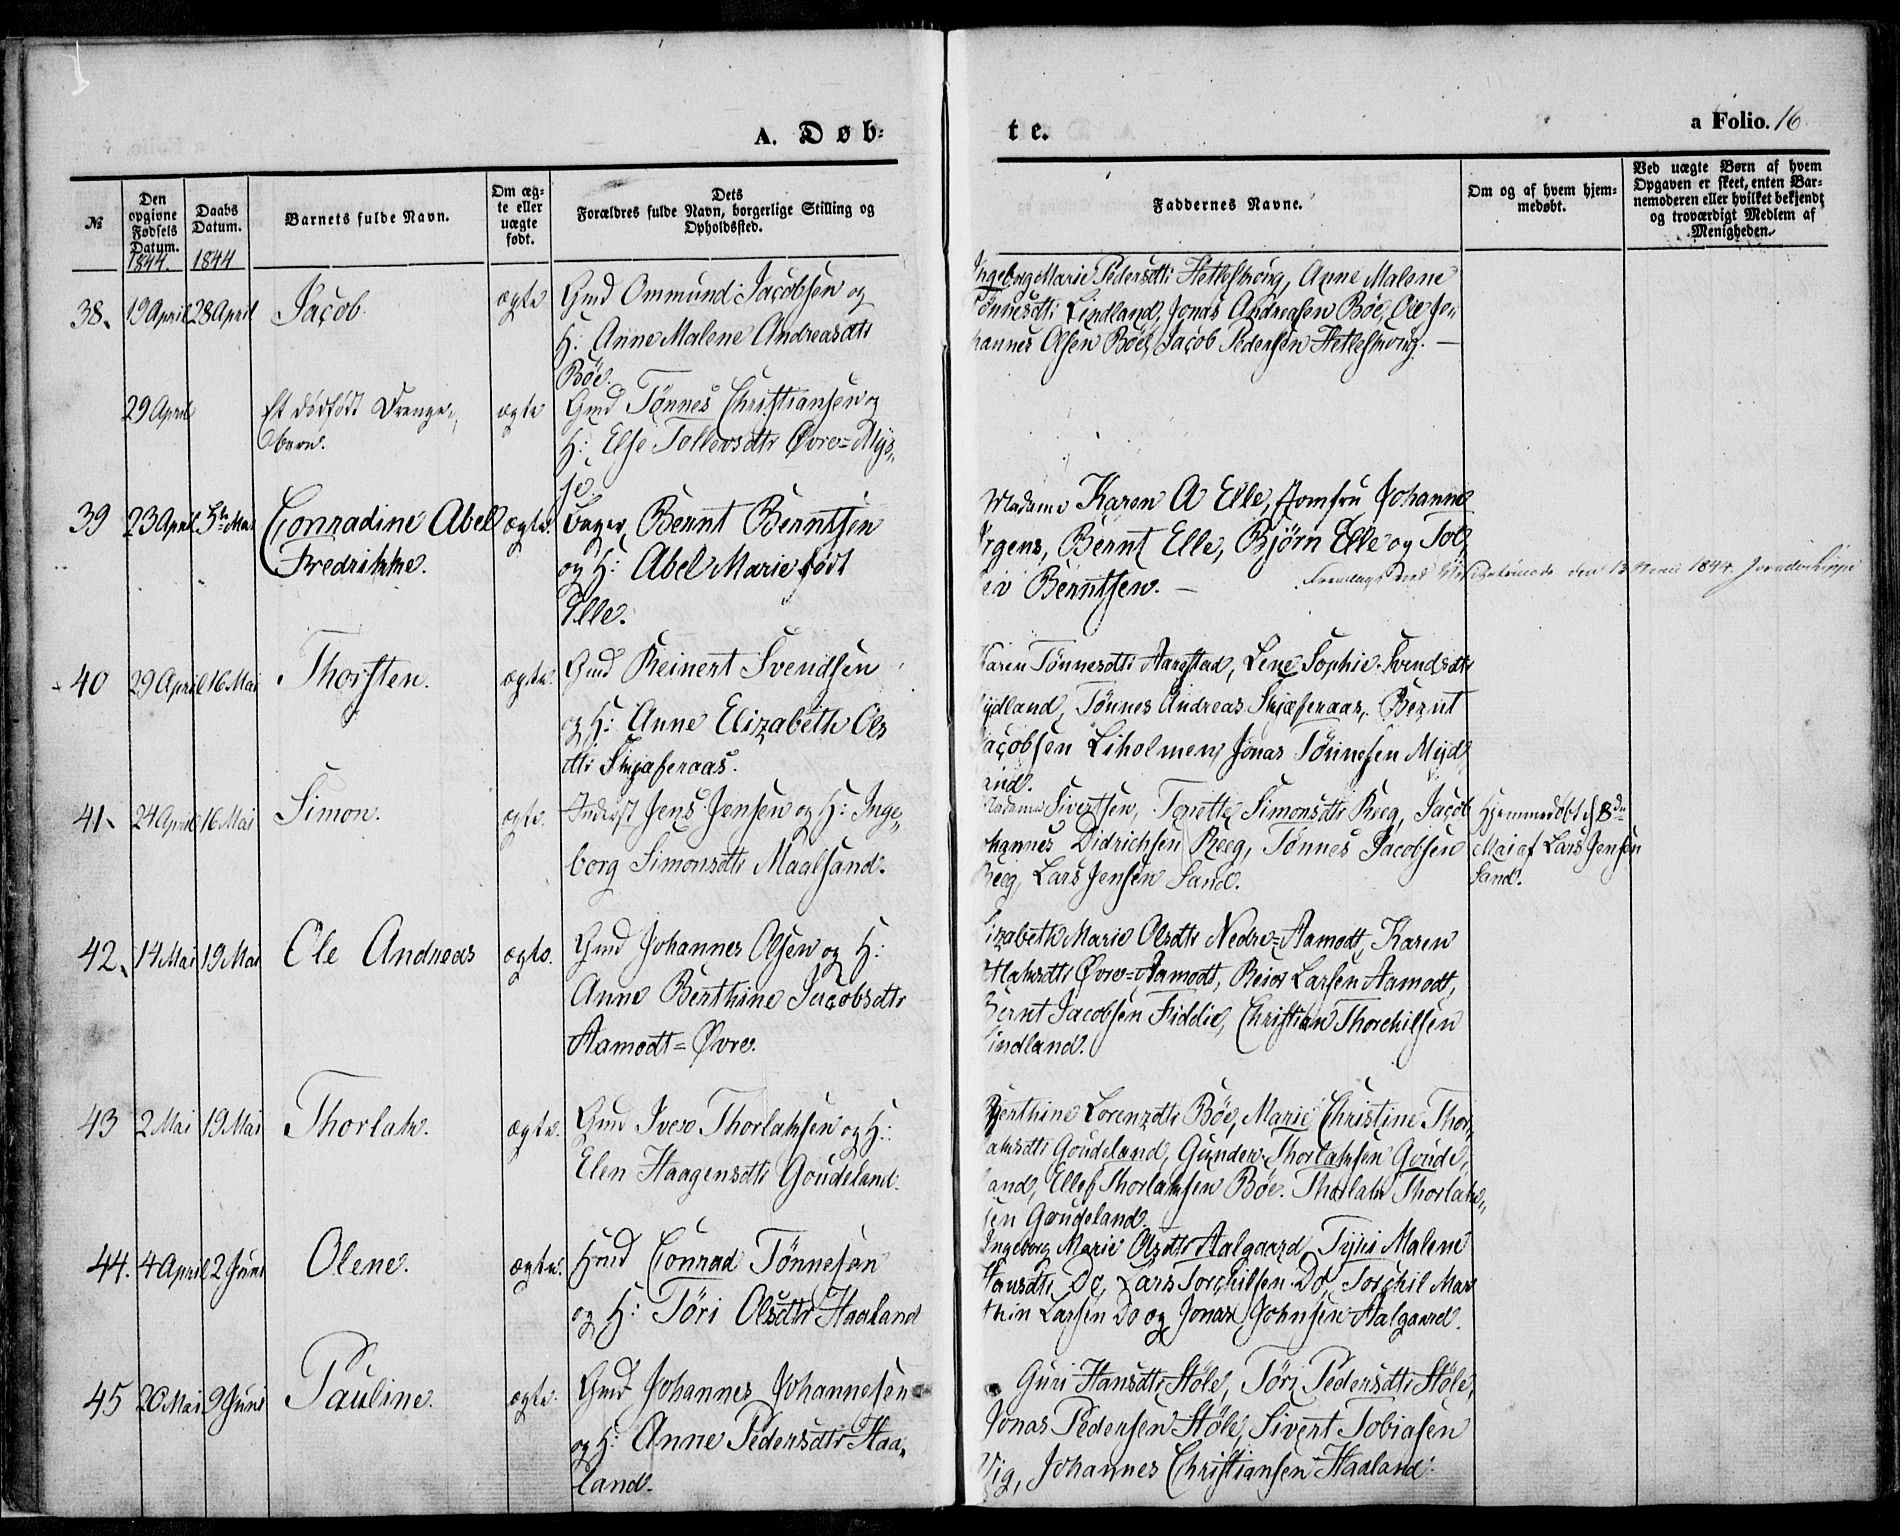 A. Døb-
te.
a Folio. 16
№
Den opgivne Fødsels Datum. 1844.
Daabs Datum. 1844
Barnets fulde Navn.
Om æg-
te eller
uægte
født.
Dets
Forældres fulde Navn, borgerlige Stilling og
Opholdssted.
Faddernes Navne.
Om og af hvem hjem-
medøbt.
Ved uægte Børn af hvem
Opgaven er skeet, enten Bar-
nemoderen eller hvilket bekjendt
og troværdigt Medlem af
Menigheden.
38. 19 April 28 April Jacob. ægte
Gmd Ommund Jacobsen og
H: Anne Malene Andreasdtr
Böe.
Ingeborg Marie Pedersdtr, Anne Malene
Tönnesdtr Lindland, Jonas Andreasen Böe, Ole Jo-
hannes Olsen Böe, Jacob Pedersen
29 April Et dødfødt Drenge-
barn. ægte
Gmd Tönnes Christiansen og
H: Else Tollevsdtr Øvre-Mys-
se.
39 23 April 5te Mai Conradine Abel
Fredrikke. ægte.
Bernt Berntsen
og H: Abel Marie født
Elle.
Madame Karen A Elle, Jomfru Johanne
Irgens, Bernt Elle, Björn Elle og Tol-
lev Berntsen.
den 13 1844.
40 29 April 16 Mai Thorsten. ægte.
Gmd Reinert Svendsen
og H: Anne Elizabeth Ols
dtr Skjæferaas.
Karen Tönnesdtr Aarstad, Lene Sophie Svendsdtr
Mydland, Tönnes Andreas Skjæferaas, Bernt
Jacobsen Liholmen, Jonas Tönnesen Myd-
land.
41. 24 April 16 Mai Simon. ægte.
Inderst Jens Jensen og H: Inge-
borg Simonsdtr Maalsand.
Madame Sivertsen, Tonette Simonsdtr Reeg, Jacob
Johannes Didrichsen Reeg, Tønnes Jacobsen
Reeg, Lars Jensen Sand.
Hjemmedøbt d. 8de
Mai af Lars Jensen
Sand.
42. 14 Mai 19 Mai Ole Andreas ægte.
Gmd Johannes Olsen og H:
Anne Berthine Jacobsdtr
Aamodt-Øvre.
Elizabeth Marie Olsdtr Nedre-Aamodt, Karen
Øvre-Aamodt, Reier Larsen Aamodt,
Bernt Jacobsen Fiddie, Christian Thorchilsen
Lindland.
43 2 Mai 19 Mai Thorlak. ægte.
Gmd Iver Thorlaksen og H:
Elen Haagensdtr Goudeland.
Berthine Lorenzdtr Böe, Marie Christine Thor-
laksdtr Goudeland, Gunder Thorlaksen Goude-
land, Ellef Thorlaksen Böe. Thorlak Thorlak-
sen Goudeland.
44. 4 April 2 Juni Olene. ægte.
Hmd Conrad Tönnesen
og H: Töri Olsdtr Haaland
Ingeborg Marie Olsdtr Aalgaard, Malene
Hansdtr Do, Lars Torchilsen Do, Torchil Mar-
thin Larsen Do og Jonas Johnsen Aalgaard.
45 20 Mai 9 Juni Pauline. ægte.
Gmd Johannes Johannesen
og H: Anne Pedersdtr Haa-
land.
Guri Hansdtr Støle, Töri Pedersdtr Støle,
Jonas Pedersen Støle, Sivert Tobiasen
Vig, Johannes Christiansen Haaland.